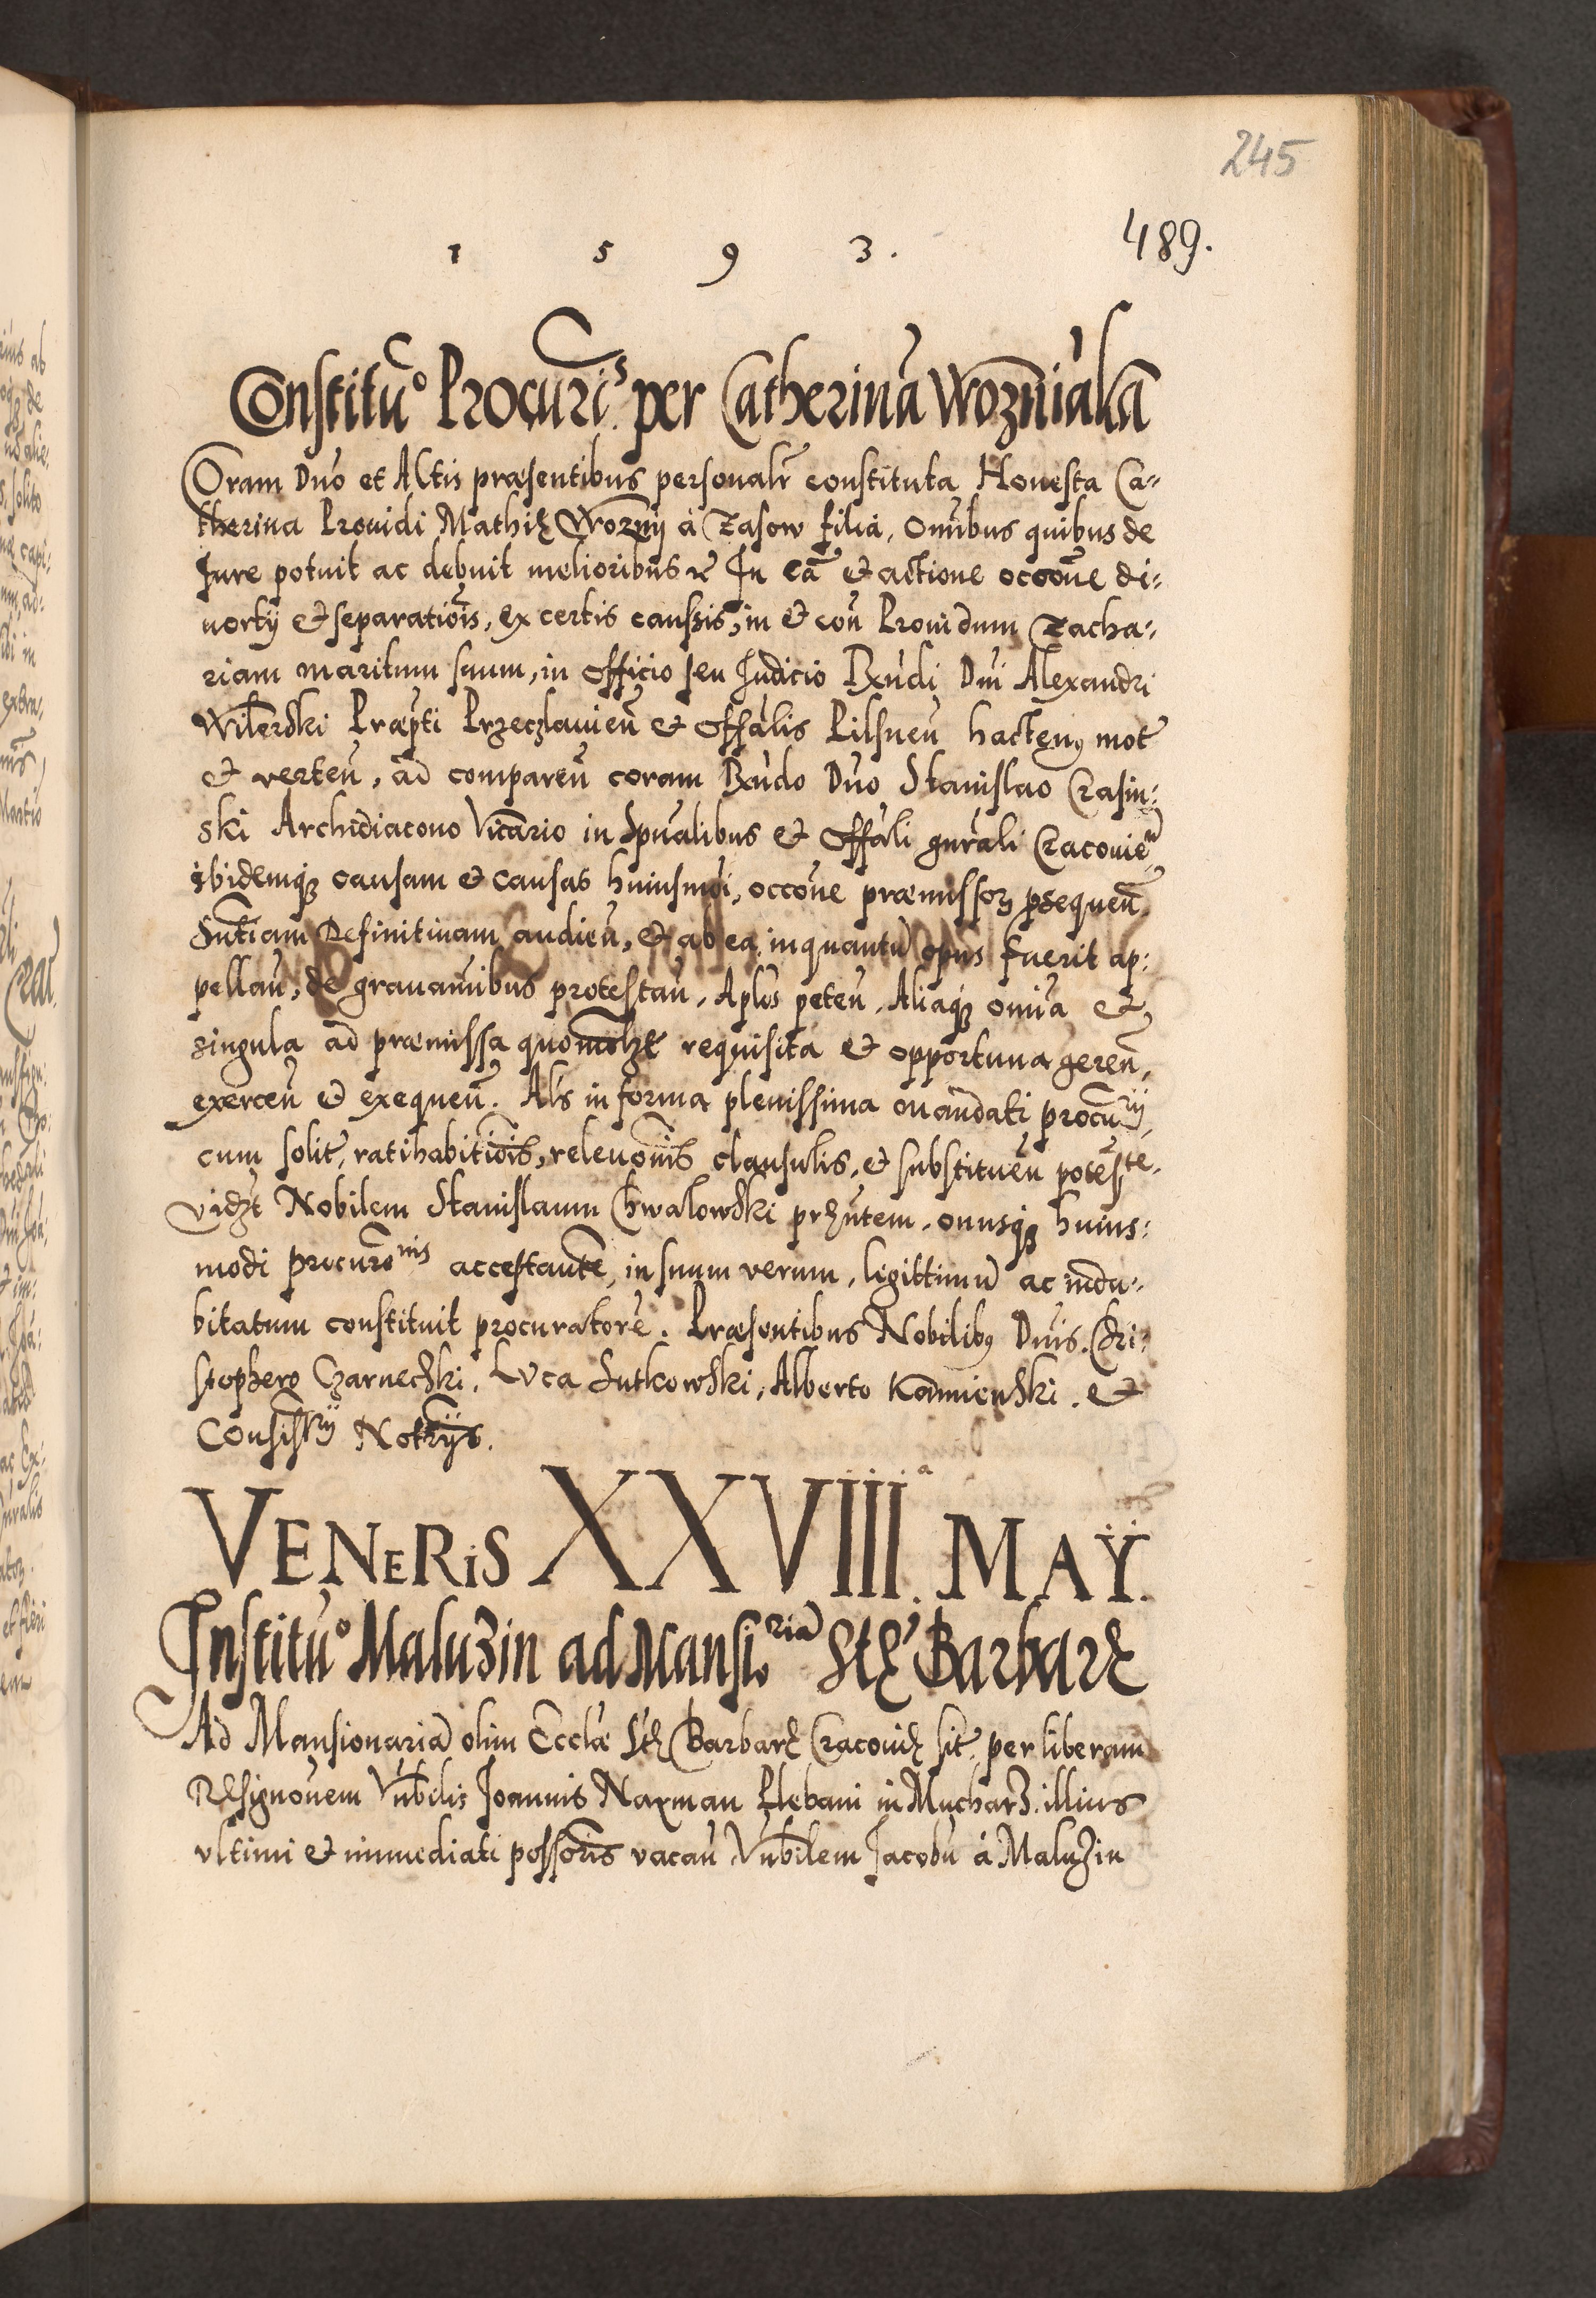 245
1 5 9 3.
489.
Constitu͠o Procur͠is per Catherina͠ Wozniaka͠
Coram Dn͠o et Actis præsentibus personalr͠ constituta Honesta Ca-
therina Prouidi Mathię Wozny à Zasow filia, Omn͠ibus quibus de
Jure potuit ac debuit melioribus &c In ca͠ et actione occo͠ne di-
uortij et separatio͠is, ex certis caussis, in et con͠ Prouidum Zacha-
riam maritum suum, in officio seu Judicio Rn͠di Dn͠i Alexandri
Præp͠ti Przeczlauien͠ et Offa͠lis Pilsnen͠ hactenus mot͠
et verten͠, ad comparen͠ coram Rn͠do Dn͠o Stanislao Crasin-
ski Archidiacono Vicario in Spu͠alibus et Offa͠li gnr͠ali Cracouien͠
ibidemq; causam et causas huiusmo͠i, occo͠ne præmissor͠ prosequen͠
Snt͠iam Definitiuam audien͠, et ab ea inquantu͠ opus fuerit ap-
pellan͠, de grauamn͠ibus protestan͠, Aplo͠s peten͠, Aliaq; omn͠ia et
singula ad præmissa quomo͠lzt requisita et opportuna geren͠,
exercen͠ et exequen͠. Al͠s in forma plenissima mandati procur͠ij,
cum solit͠, ratihabitio͠is, releuo͠nis clausulis, et substituen͠ potes͠te.
vidzt Nobilem Stanislaum Chwalowski prn͠tem, onusq; huius-
modi procuro͠nis acceptante͠, in suum verum, legittimu͠ ac indu-
bitatum constituit procuratore͠. Præsentibus Nobilibus Dn͠is. Chri-
stophero Czarnecski, Luca Lutkowski, Alberto Kamienski. et
Consist͠rij Not͠rijs.
VENERIS XXVIII.ª MAŸ.
Institu͠o Maluzin ad Mansio.ria͠ Stę Barbarę
Ad Mansionaria͠ olim Eccl͠æ Stę Barbarę Cracouię sit͠ per liberam
Resigno͠nem Vn͠bilis Joannis Naxman Plebani in Mucharz. illius
vltimi et immediati posso͠ris vacan͠ Vn͠bilem Jacobu͠ à Maluzin